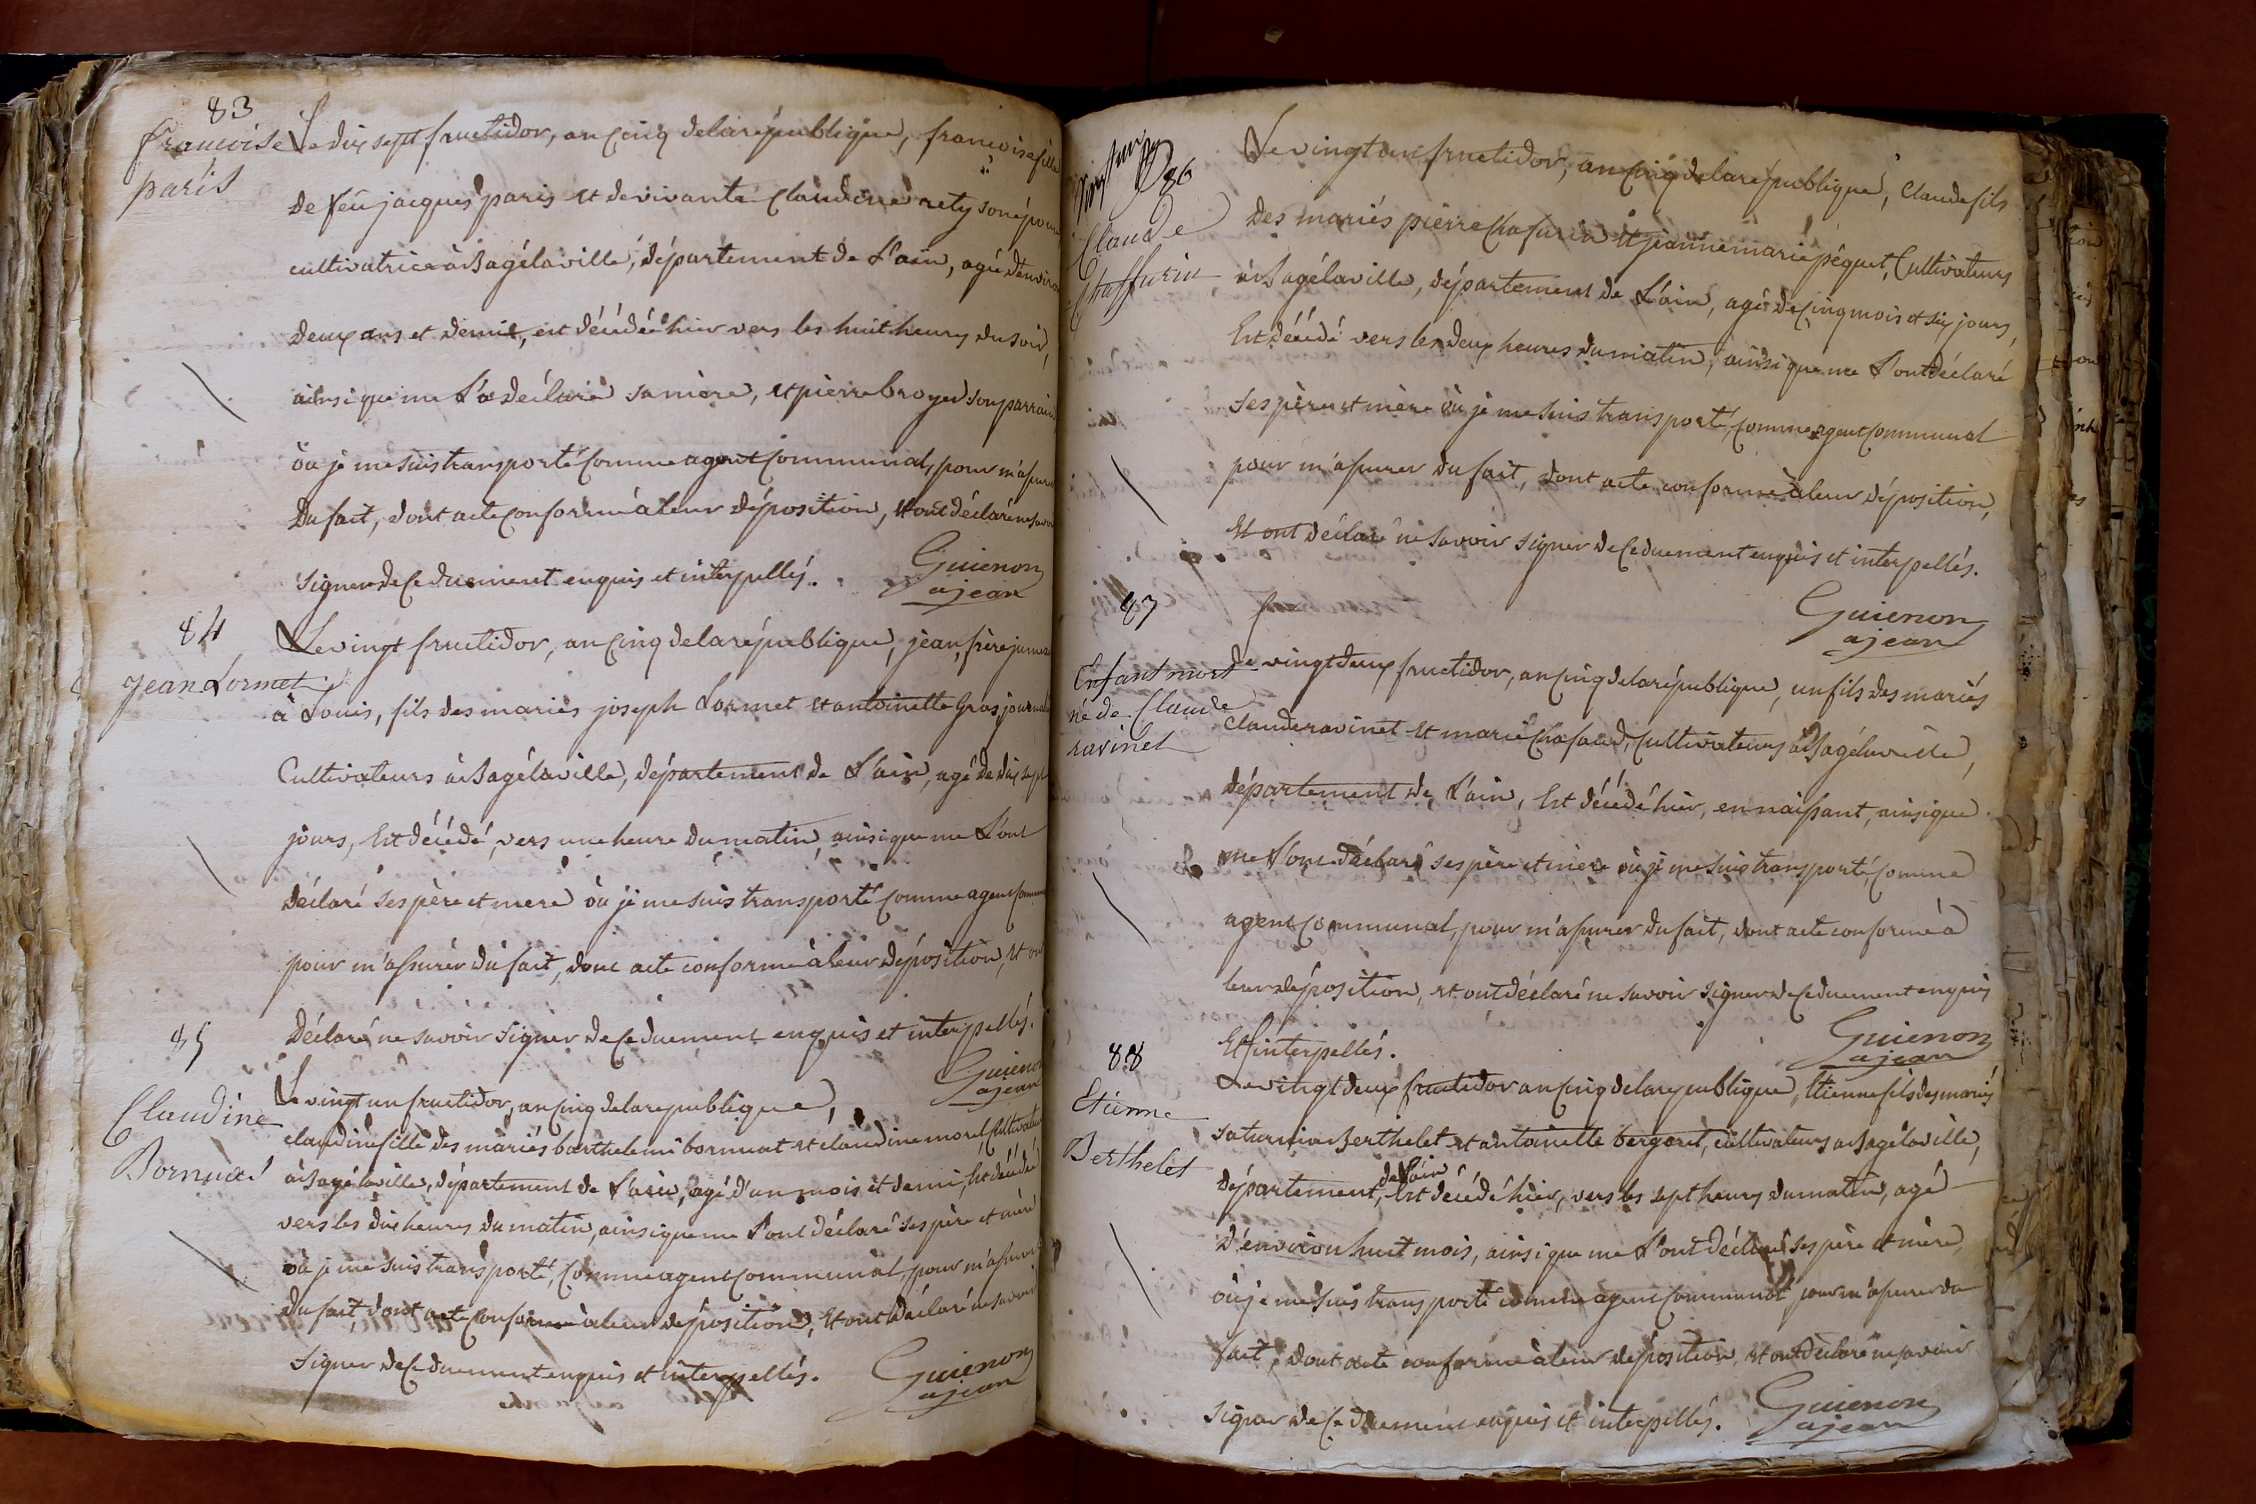 83
francoise
paris
Le dix sept fructidor, an cinq de la république, francoise fille
de feu jacques paris et de vivante Claudine rety son épouse
cultivatrice à Bagélaville, département de L'ain, agé d'environ
deux ans et demie, est décédée hier vers les huit heures du soir,
ainsi que me L'a déclaré sa mère, et pierre broyer son parrain,
où je me suis transporté comme agent communal, pour m'assurer
du fait, dont acte conforme à leur déposition, et ont déclaré ne savoir
signer de ce duement enquis et interpellés.
Guienon
ajean
84
jean Lormet
Le vingt fructidor, an cinq de la république, jean, frère jumeau
à Louis, fils des mariés joseph Lormet et antoinette Gras journaliers
Cultivateurs à Bagélaville, département de L'ain, agé de dix sept
jours, est décédé, vers une heure du matin, ainsi que me L'ont
déclaré ses père et mere où je me suis transporté comme agent communal
pour m'assurer du fait, dont acte conforme à leur déposition, et ont
déclaré ne savoir signer de ce duement enquis et interpellés.
Guienon
ajean
85
Claudine
Bornuat
Le vingt un fructidor, an cinq de la republique,
claudine fille des mariés barthelemi bornuat et claudine morel, Cultivateurs
à Bagélaville, département de L'ain, agé d'un mois et demi, Est décédée
vers les dix heures du matin, ainsi que me L'ont déclaré ses père et mère
où je me suis transporté, comme agent communal, pour m'assurer
du fait, dont acte conforme à leur déposition, et ont déclaré ne savoir
signer de ce duement enquis et interpellés.
Guienon
ajean
86
Claude
Chaffurin
Le vingt un fructidor, an cinq de la république, Claude fils
des mariés pierre Chafurin et jeanne marie péquet, Cultivateurs
à Bagélaville, département de L'ain, agé de cinq mois et six jours,
Est décédé vers les deux heures du matin, ainsi que me L'ont déclaré
ses père et mère où je me suis transporté, comme agent communal
pour m'assurer du fait, dont acte conforme à leur déposition,
et ont déclaré ne savoir signer de ce duement enquis et interpellés.
Guienon
ajean
87
Enfant mort
né de Claude
ravinet
Le vingt deux fructidor, an cinq de la république, un fils des mariés
claude ravinet et marie Chafaud, Cultivateurs à Bagélaville,
département de L'ain, Est décédé hier, en naissant, ainsi que
me L'ont déclaré ses père et mère où je me suis transporté comme
agent communal, pour m'assurer du fait, dont acte conforme à
leur déposition, et ont déclaré ne savoir signer de ce duement enquis
Et interpellés.
Guienon
ajean
88
Etienne
Berthelet
Le vingt deux fructidor an cinq de la republique, Etienne fils des mariés
saturnin Berthelet et antoinette bergeret, cultivateurs à Bagélaville,
département, de L'ain Est décédé hier, vers les sept heures du matin, agé
d'environ huit mois, ainsi que me L'ont déclaré ses père et mère,
où je me suis transporté comme agent communal pour m'assurer du
fait, dont acte conforme à leur déposition, et ont déclaré ne savoir
signer de ce duement enquis et interpellés.
Guienon
ajean